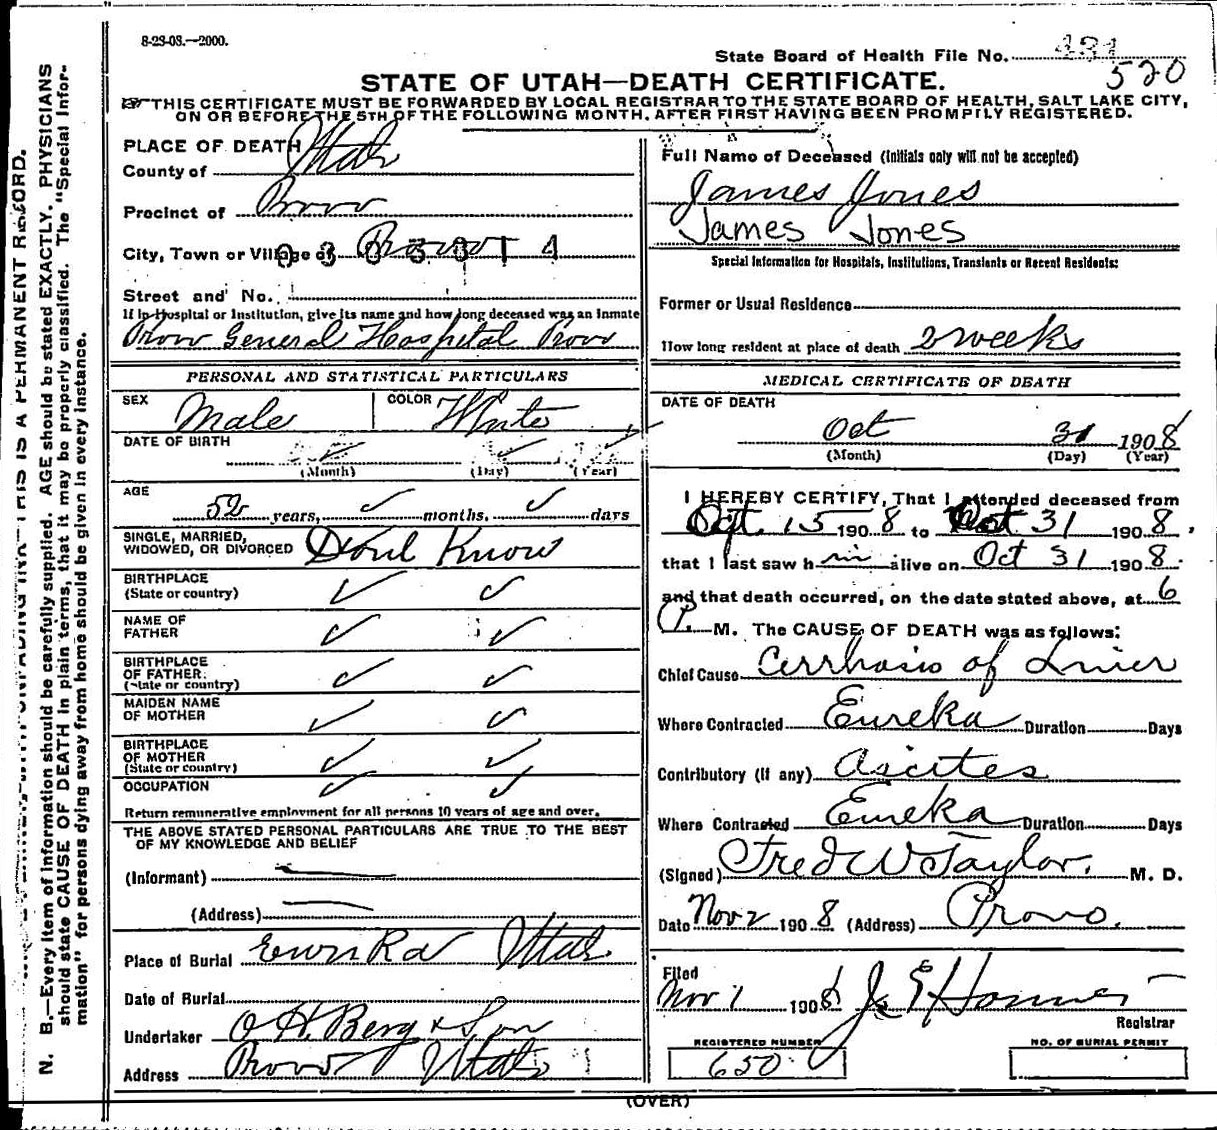 8-23-08.—2000.
State Board of Health File No. 431
520
STATE OF UTAH—DEATH CERTIFICATE.
THIS CERTIFICATE MUST BE FORWARDED BY LOCAL REGISTRAR TO THE STATE BOARD OF HEALTH, SALT LAKE CITY,
ON OR BEFORE THE 5TH OF THE FOLLOWING MONTH, AFTER FIRST HAVING BEEN PROMPTLY REGISTERED.
PLACE OF DEATH
County of Utah
Precinct of Provo
City, Town or Village of Provo
Street and No.
If in Hospital or Institution, give its name and how long deceased was an inmate
Provo General Hospital Provo
PERSONAL AND STATISTICAL PARTICULARS
SEX Male COLOR White
DATE OF BIRTH
(Month) (Day) (Year)
AGE
52 years, ✓ months, ✓ days
SINGLE, MARRIED,
WIDOWED, OR DIVORCED Dont Know
BIRTHPLACE
(State or country) ✓ ✓
NAME OF
FATHER ✓ ✓
BIRTHPLACE
OF FATHER
(State or country) ✓ ✓
MAIDEN NAME
OF MOTHER ✓ ✓
BIRTHPLACE
OF MOTHER
(State or country) ✓ ✓
OCCUPATION ✓ ✓
Return remunerative employment for all persons 10 years of age and over.
THE ABOVE STATED PERSONAL PARTICULARS ARE TRUE TO THE BEST
OF MY KNOWLEDGE AND BELIEF
(Informant)
(Address)
Place of Burial Eureka Utah
Date of Burial
Undertaker O H. Berg & Son
Address Provo Utah
Full Name of Deceased (Initials only will not be accepted)
James Jones
James Jones
Special Information for Hospitals, Institutions, Transients or Recent Residents:
Former or Usual Residence
How long resident at place of death 2 weeks
MEDICAL CERTIFICATE OF DEATH
DATE OF DEATH
Oct 31 1908
(Month) (Day) (Year)
I HEREBY CERTIFY, That I attended deceased from
Oct 15 1908 to Oct 31 1908,
that I last saw him alive on Oct 31 1908
and that death occurred, on the date stated above, at 6
P. M. The CAUSE OF DEATH was as follows:
Chief Cause Cirrhosis of Liver
Where Contracted Eureka Duration Days
Contributory (if any) Ascites
Where Contracted Eureka Duration Days
(Signed) Fred W Taylor, M. D.
Date Nov 2 1908 (Address) Provo.
Filed
Nov 1 1908 J E
Registrar
REGISTERED NUMBER
650
NO. OF BURIAL PERMIT
(OVER)
THIS IS A PERMANENT RECORD.
N. B.—Every item of information should be carefully supplied. AGE should be stated EXACTLY. PHYSICIANS
should state CAUSE OF DEATH in plain terms, that it may be properly classified. The "Special Infor-
mation" for persons dying away from home should be given in every instance.